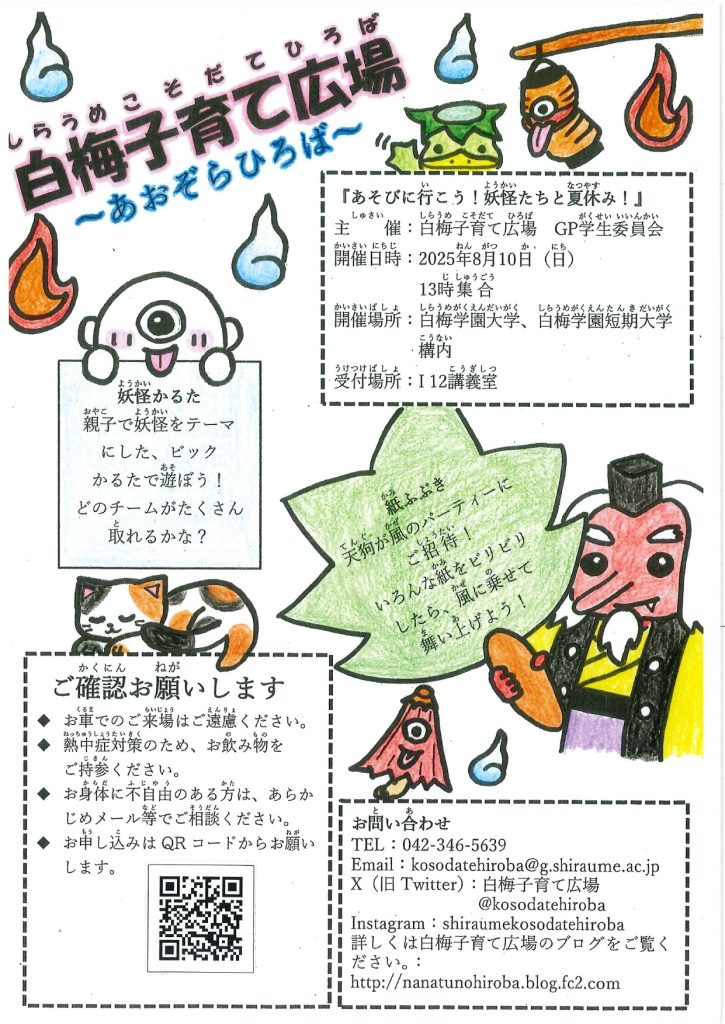 しらうめこそだてひろば
白梅子育て広場
～あおぞらひろば～
『あそびに行こう！妖怪たちと夏休み！』
主催：白梅子育て広場 GP学生委員会
開催日時：2025年8月10日（日）
13時集合
開催場所：白梅学園大学、白梅学園短期大学
構内
受付場所：I 12講義室
妖怪かるた
親子で妖怪をテーマ
にした、ビック
かるたで遊ぼう！
どのチームがたくさん
取れるかな？
紙ふぶき
天狗が風のパーティーに
ご招待！
いろんな紙をビリビリ
したら、風に乗せて
舞い上げよう！
ご確認お願いします
◆ お車でのご来場はご遠慮ください。
◆ 熱中症対策のため、お飲み物を
ご持参ください。
◆ お身体に不自由のある方は、あらか
じめメール等でご相談ください。
◆ お申し込みは QR コードからお願い
します。
お問い合わせ
TEL：042-346-5639
Email：kosodatehiroba@g.shiraume.ac.jp
X（旧 Twitter）：白梅子育て広場
@kosodatehiroba
Instagram：shiraumekosodatehiroba
詳しくは白梅子育て広場のブログをご覧く
ださい。：
http://nanatunohiroba.blog.fc2.com